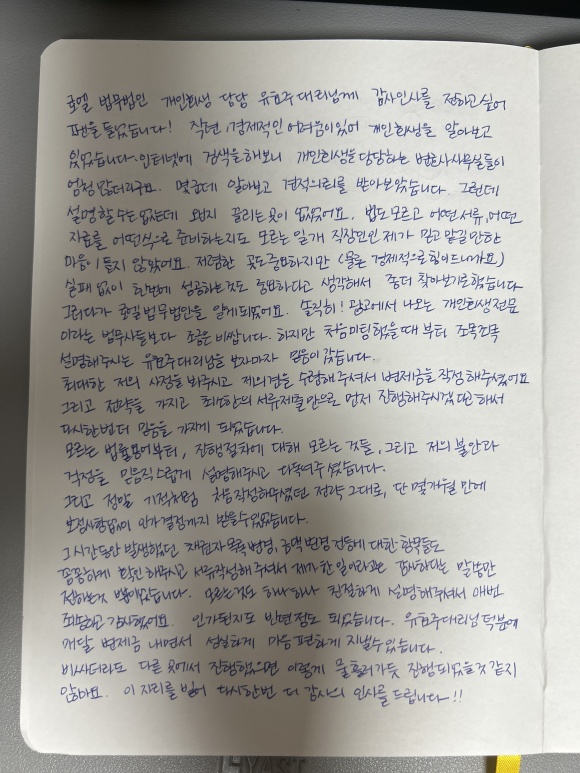 로엘 법무법인 개인회생 담당 유효주 대리님께 감사인사를 전하고 싶어
펜을 들었습니다! 작년, 경제적인 어려움이 있어 개인회생을 알아보고
있었습니다. 인터넷에 검색을 해보니 개인회생을 담당하는 변호사사무실들이
엄청 많더라구요. 몇군데 알아보고 견적의뢰를 받아보았습니다. 그런데
설명할 수는 없는데 왠지 끌리는 곳이 없었어요. 법도 모르고 어떤 서류, 어떤
자료를 어떤식으로 준비하는지도 모르는 일개 직장인인 제가 믿고 맡길만한
마음이 들지 않았어요. 저렴한 곳도 중요하지만 (물론 경제적으로 힘이드니까요)
실패 없이 한번에 성공하는것도 중요하다고 생각해서 좀더 찾아보기로 했습니다
그러다가 로엘 법무법인을 알게되었어요. 솔직히! 광고에서 나오는 개인회생전문
이라는 법무사들보다 조금은 비쌉니다. 하지만 처음 미팅했을때 부터 조목조목
설명해주시는 유효주 대리님을 보자마자 믿음이 갔습니다.
최대한 저의 사정을 봐주시고 제 의견을 수렴해주셔서 변제금을 작성해주셨어요
그리고 전략을 가지고 최소한의 서류제출만으로 먼저 진행해주시겠다고 해서
다시한번 더 믿음을 가지게 되었습니다.
모르는 법률용어부터, 진행절차에 대해 모르는 것들, 그리고 저의 불안과
걱정을 믿음직스럽게 설명해주시고 다독여주셨습니다.
그리고 정말 기적처럼 처음 작정하무셨던 전략 그대로, 단 몇개월 만에
보정사항없이 인가결정까지 받을수있었습니다.
그 시간동안 발생했던 채권자 목록 변경, 금액 변경 건등에 대한 항목들도
꼼꼼하게 확인해주시고 서류작성해주셔서 제가 한 일이라곤 감사하다는 말씀만
전하는것 뿐이었습니다. 모르는것도 하나하나 친절하게 설명해주셔서 매번
죄송하고 감사했어요. 인가된지도 반년정도 되었습니다. 유효주대리님 덕분에
매달 변제금 내면서 성실하게 마음 편하게 지낼수있습니다.
비싸더라도 다른 곳에서 진행했으면 이렇게 물흘러가듯 진행되었을것 같지
않아요. 이 자리를 빌어 다시한번 더 감사의 인사를 드립니다!!